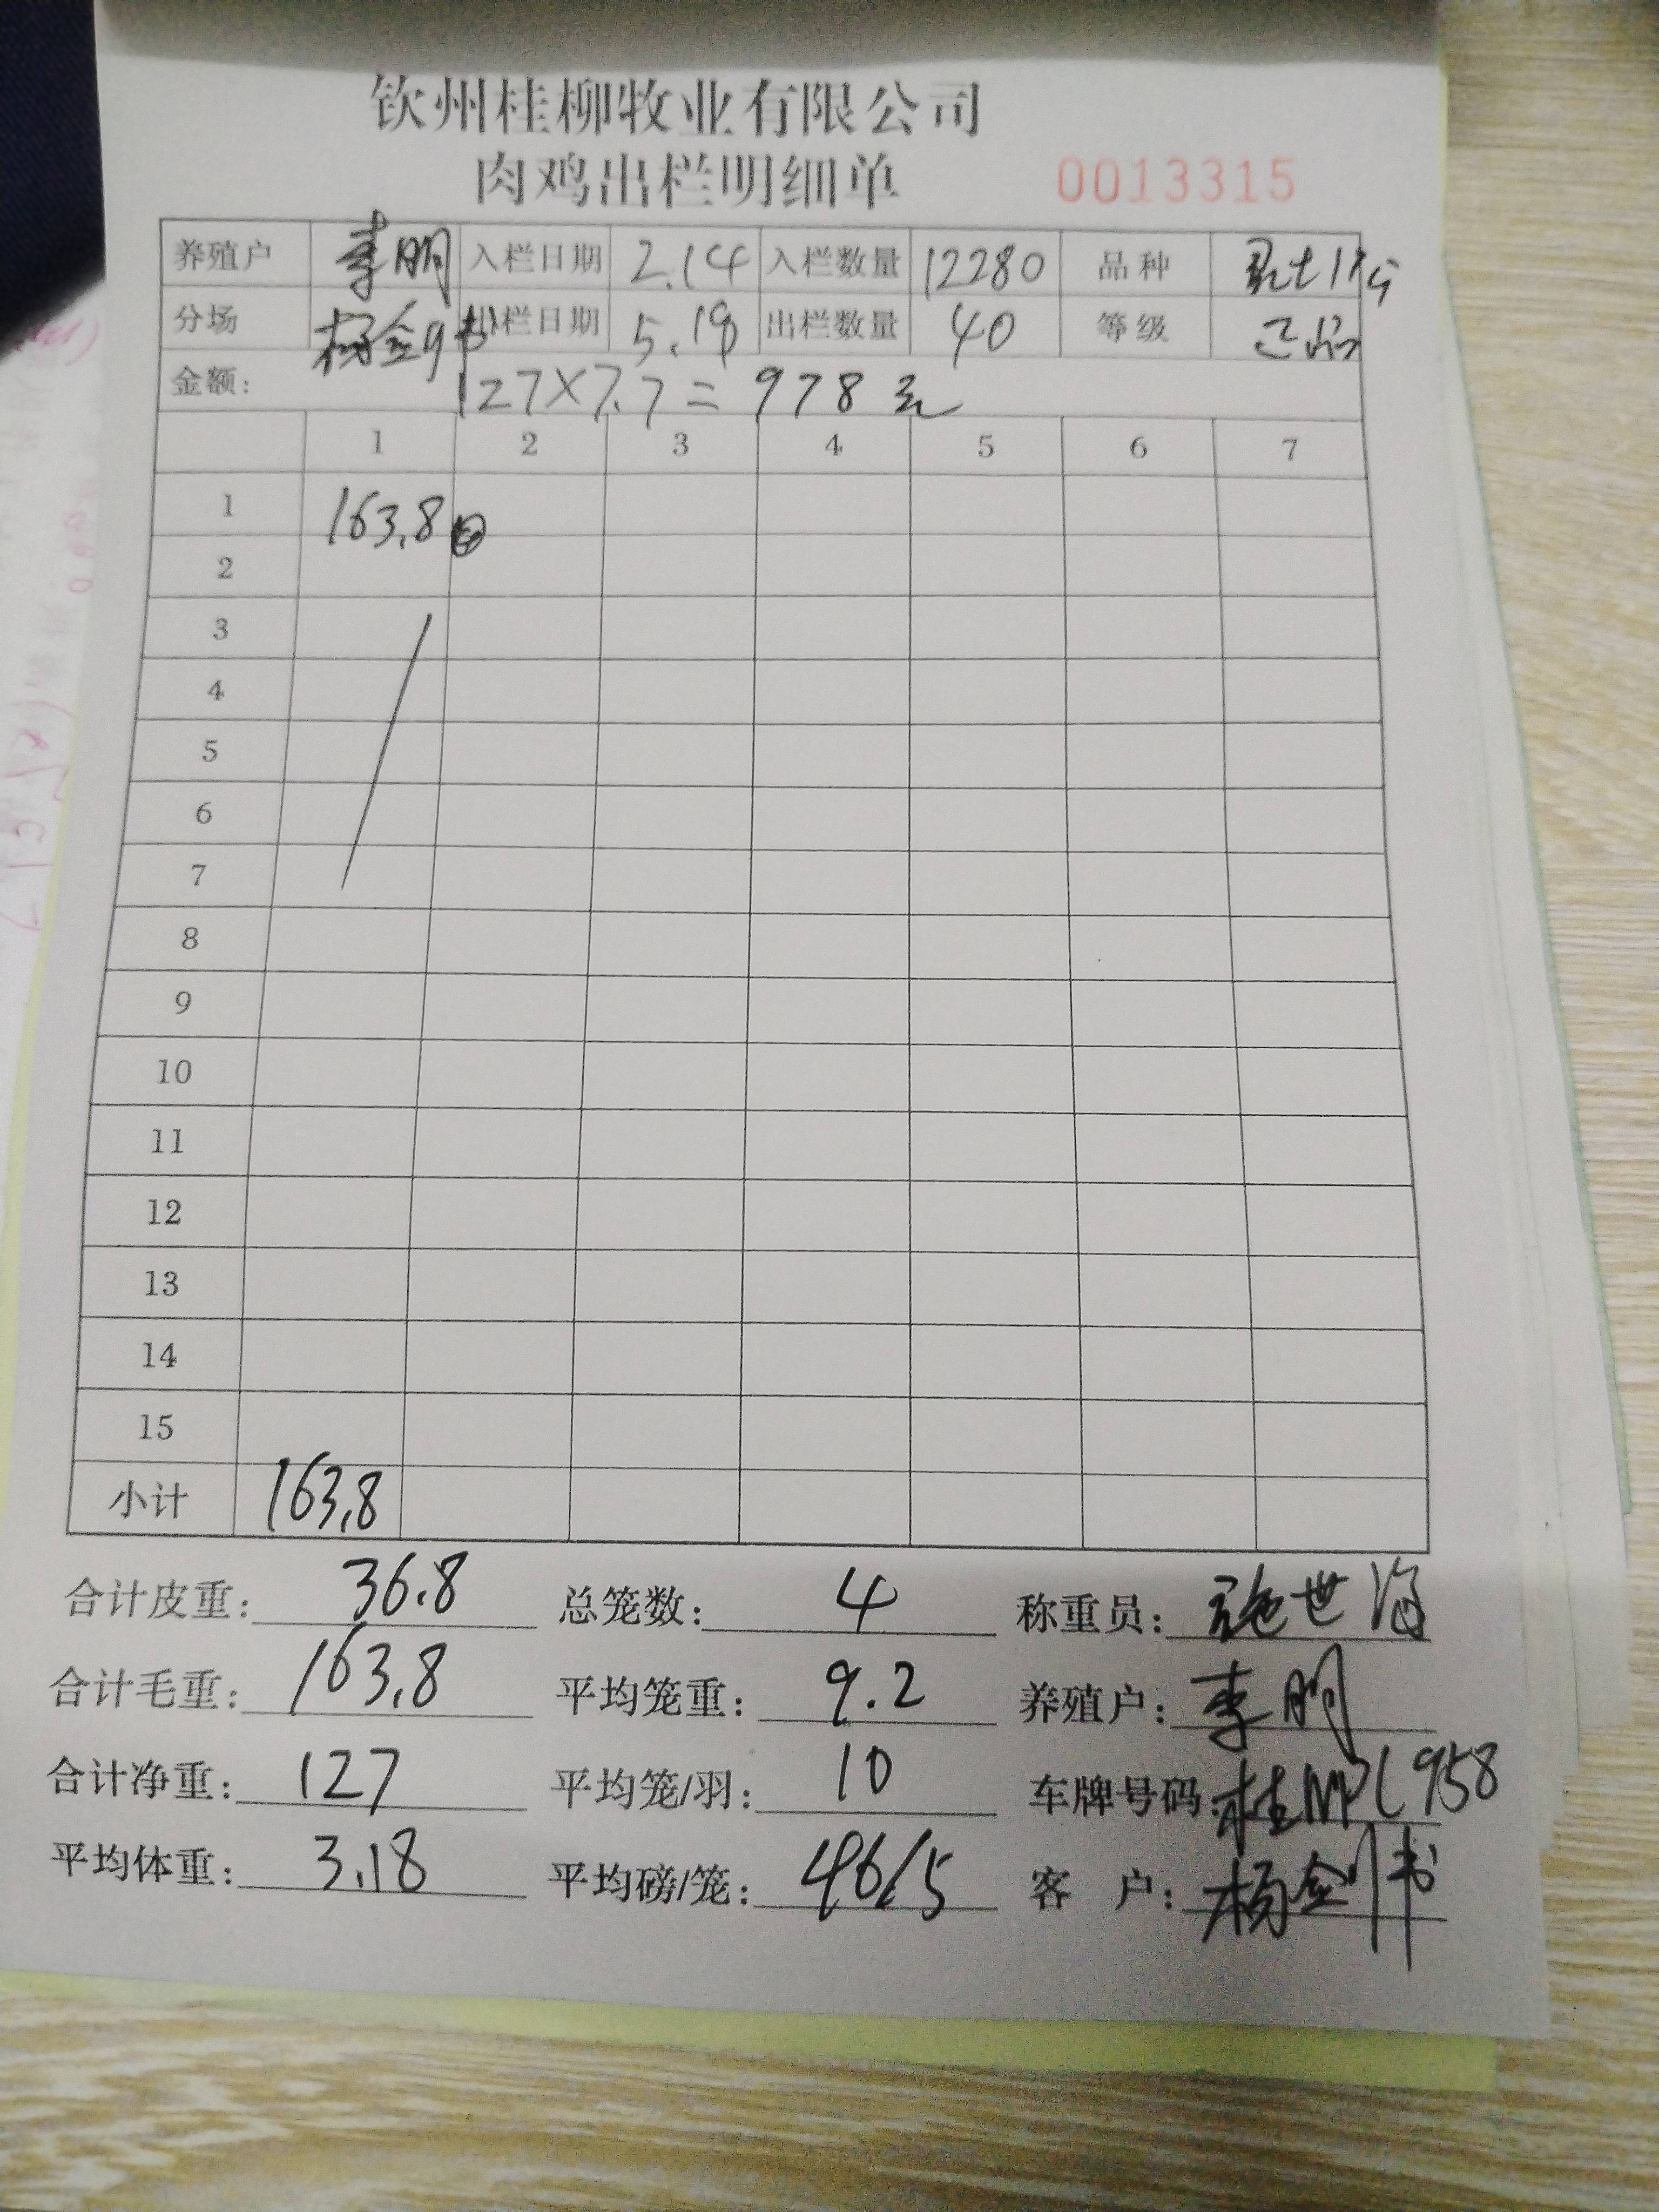 钦州桂柳牧业有限公司
肉鸡出栏明细单 0013315
养殖户 李明 入栏日期 2.14 入栏数量 12280 品种
分场 出栏日期 5.19 出栏数量 40 等级
金额: 127×7.7=978元
1 2 3 4 5 6 7
1 163.8
2
3
4
5
6
7
8
9
10
11
12
13
14
15
小计 163.8
合计皮重: 36.8 总笼数: 4 称重员: 施世海
合计毛重: 163.8 平均笼重: 9.2 养殖户: 李明
合计净重: 127 平均笼/羽: 10 车牌号码:
平均体重: 3.18 平均磅/笼: 客 户: